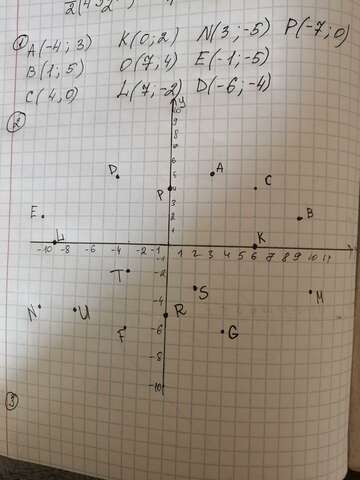 ① A(-4; 3) K(0; 2) N(3; -5) P(-7; 0)
B(1; 5) O(7, 4) E(-1; -5)
C(4, 0) L(7; -2) D(-6; -4)
②
y
10
9
8
7
6
5
4
3
2
1
D
A
C
P
E
B
L
K
-10 -8 -6 -4 -2 -1 1 2 3 4 5 6 7 8 9 10 11
T
-2
S
M
N
U
-4
R
F
-6
G
-8
-10
③